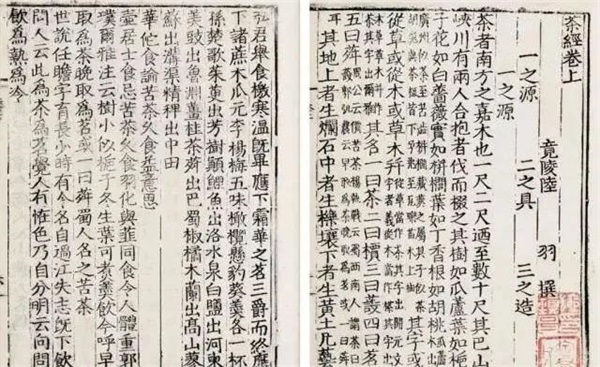 茶經卷上
竟陵陸 羽 撰
一之源 二之具 三之造
一之源
茶者南方之嘉木也一尺二尺迺至數十尺其巴山
峽川有兩人合抱者伐而掇之其樹如瓜蘆葉如梔
子花如白薔薇實如栟櫚葉如丁香根如胡桃
其字或
從草或從木或草木并
其名一曰茶二曰檟三曰蔎四曰茗
其地上者生爛石中者生櫟壤下者生黃土凡藝
弘君舉食檄寒溫既畢應下霜華之茗三爵而終應
下諸蔗木瓜元李楊梅五味橄欖懸豹葵羹各一杯
孫楚歌茱萸出芳樹顛鯉魚出洛水泉白鹽出河東
美豉出魯淵薑桂茶荈出巴蜀椒橘木蘭出高山蓼
蘇出溝渠精稗出中田
華佗食論苦茶久食益意思
壺居士食忌苦茶久食羽化與韭同食令人體重郭
璞爾雅注云樹小似梔子冬生葉可煮羹飲今呼早
取為茶晚取為茗或一曰荈蜀人名之苦茶
世說任瞻字育長少時有令名自過江失志既下飲
問人云此為茶為茗覺人有怪色乃自分明云向問
飲為熱為冷